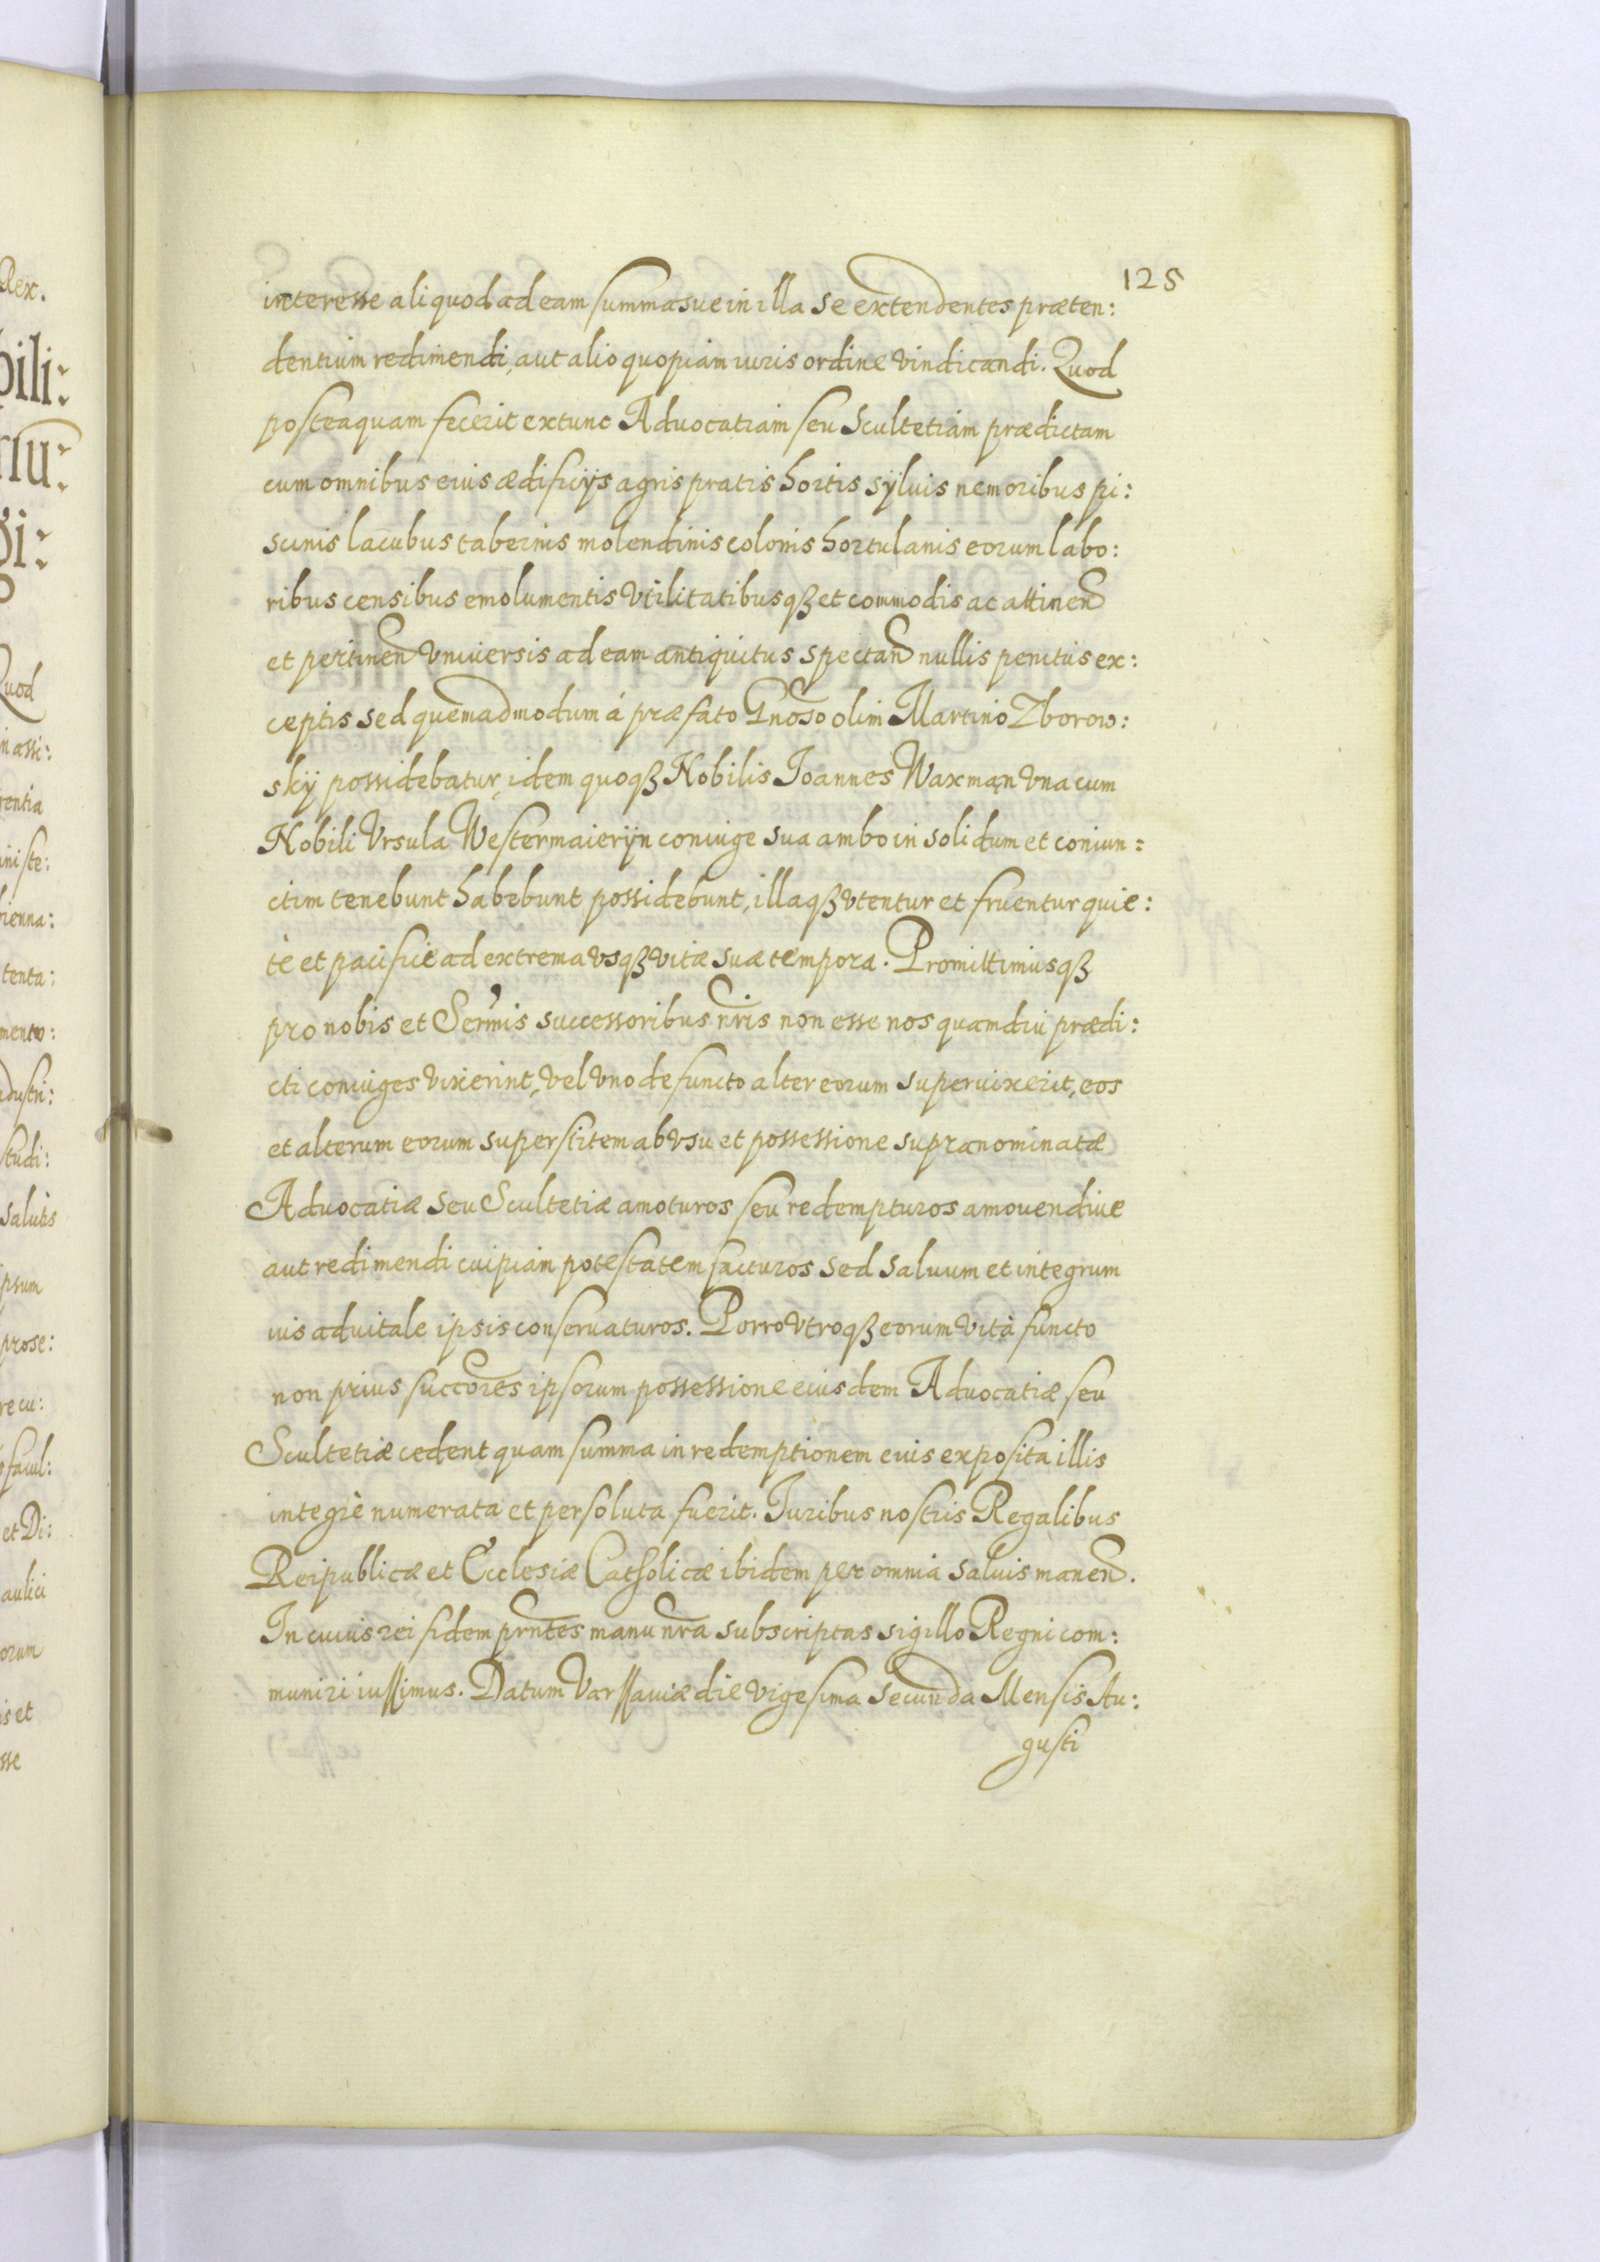 125
interesse aliquod ad eam summasue in illa se extendentes præten:
dentium redimendi, aut alio quopiam iuris ordine vindicandi. Quod
posteaquam fecerit extunc Advocatiam seu Scultetiam prædictam
cum omnibus eius ædificijs agris pratis hortis sÿluis nemoribus pi:
scinis lacubus tabernis molendinis colonis hortulanis eorum labo:
ribus censibus emolumentis vtilitatibusqȝ et commodis ac attinen
et pertinen vniuersis ad eam antiquitus spectan nullis penitus ex:
ceptis sed quemadmodum á præfato Gnoso olim Martino Zborow:
skÿ possidebatur, idem quoqȝ Nobilis Joannes Waxman vna cum
Nobili Vrsula Westermaierÿn coniuge sua ambo in solidum et coniun:
ctim tenebunt habebunt possidebunt, illaqȝ vtentur et fruentur quie:
tè et pacificè ad extrema vsqȝ vitæ suæ tempora. Promittimusqȝ
pro nobis et Sermis successoribus nris non esse nos quamdiu prædi:
cti coniuges vixerint, vel vno defuncto alter eorum superuixerit, eos
et alterum eorum superstitem ab vsu et possessione supranominatæ
Advocatiæ seu Scultetiæ amoturos seu redempturos amouendiue
aut redimendi cuipiam potestatem facturos sed saluum et integrum
ius aduitale ipsis conseruaturos. Porro vtroqȝ eorum vità functo
non prius succores ipsorum possessione eiusdem Advocatiæ seu
Scultetiæ cedent quam summa in redemptionem eius exposita illis
integrè numerata et persoluta fuerit. Juribus nostris Regalibus
Reipublicæ et Ecclesiæ Catholicæ ibidem per omnia saluis manen.
In cuius rei fidem prntes manu nra subscriptas sigillo Regni com:
muniri iussimus. Datum Varssauiæ die vigesima secunda Mensis Au:
gusti
Rex.
bili:
riu:
gi:
Quod
in assi:
rentia
iniste:
rienna:
tenta:
mento:
dustri:
studi:
salutis
ipsum
prose:
recu:
facul:
et Di:
aulici
orum
is et
sse